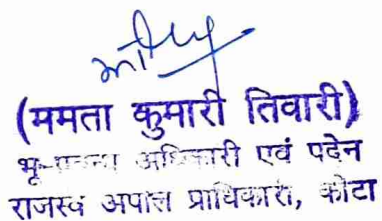 (ममता कुमारी तिवारी)
अधिकारी एवं पदेन
राजस्व अपील प्राधिकारी, कोटा